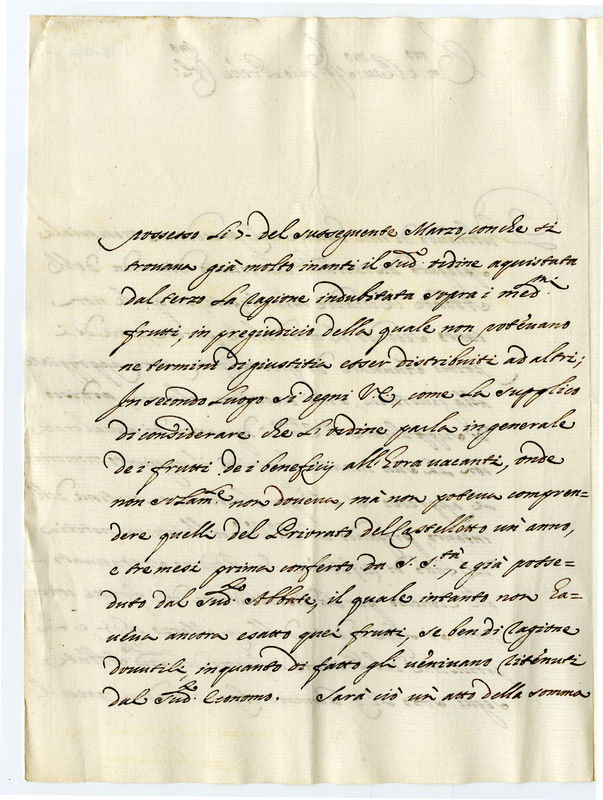 possesso li 7 del susseguente Marzo, con che si
trovava già molto inanti il sud.º ordine aquistata
dal terzo la ragione indubitata sopra i med.mi
frutti, in pregiudicio della quale non potèvano
ne termini di giustitia esser distribuiti ad altri;
In secondo luogo si degni V.E., come la supplico
di considerare che l'ordine parla in generale
de i frutti de i beneficij all'hora vacanti, onde
non solam.te non doveva, mà non poteva compren-
dere quelli del Priorato del Castelletto un'anno,
e tre mesi prima conferto da S. S.tà, e già posse=
duto dal sud.to Abbate, il quale intanto non ha=
vèva ancora esatto quei frutti, se ben di ragione
dovutili, in quanto di fatto gli venivano ritenuti
dal sud.to Economo. Sarà ciò un'atto della somma